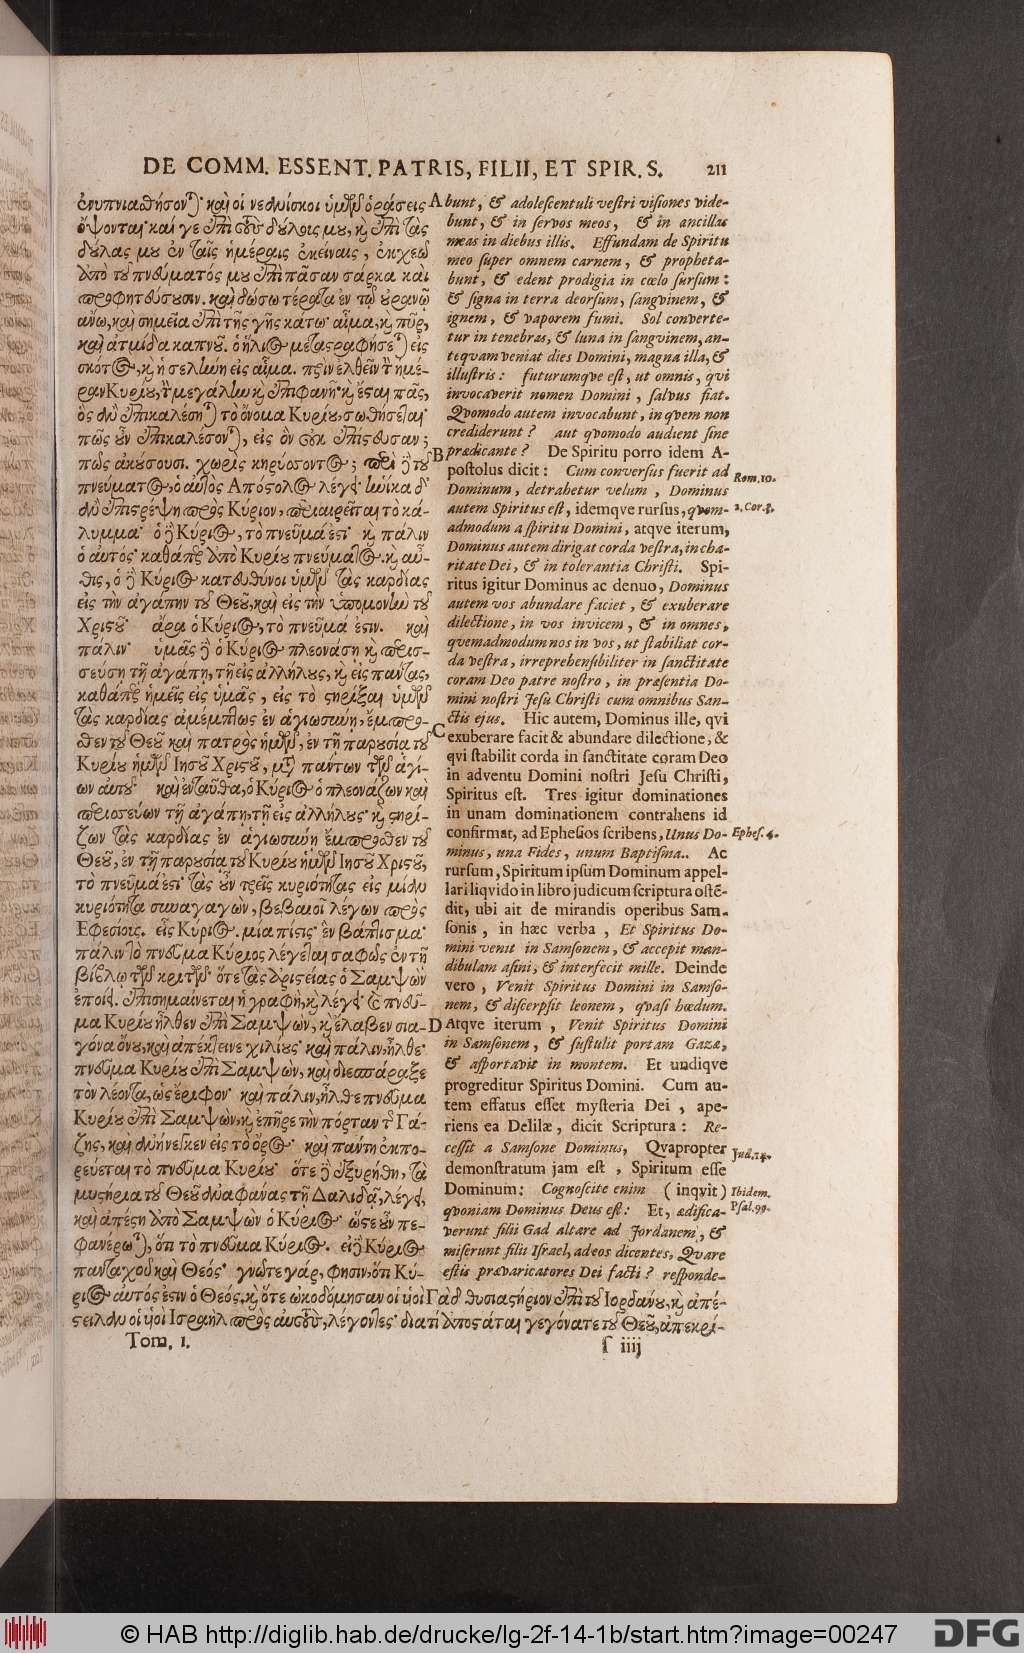 DE COMM. ESSENT. PATRIS, FILII, ET SPIR. S. 211
ἐνυπνιασθήσονται· καὶ οἱ νεανίσκοι ὑμῶν ὁράσεις
ὄψονται· καί γε ἐπὶ τοὺς δούλοις μου, καὶ ἐπὶ τὰς
δούλας μου ἐν ταῖς ἡμέραις ἐκείναις, ἐκχεῶ
ἀπὸ τοῦ πνεύματός μου ἐπὶ πᾶσαν σάρκα καὶ
προφητεύσουσιν. καὶ δώσω τέρατα ἐν τῷ οὐρανῷ
ἄνω, καὶ σημεῖα ἐπὶ τῆς γῆς κάτω· αἷμα, καὶ πῦρ,
καὶ ἀτμίδα καπνοῦ. ὁ ἥλιος μεταστραφήσεται εἰς
σκότος, καὶ ἡ σελήνη εἰς αἷμα. πρὶν ἐλθεῖν τὴν ἡμέ-
ραν Κυρίου, τὴν μεγάλην καὶ ἐπιφανῆ· καὶ ἔσται πᾶς,
ὃς ἂν ἐπικαλέσηται τὸ ὄνομα Κυρίου, σωθήσεται·
πῶς οὖν ἐπικαλέσονται, εἰς ὃν οὐκ ἐπίστευσαν;
πῶς ἀκούσουσι. χωρὶς κηρύοσοντος; περὶ δὲ τοῦ
πνεύματος, ὁ αὐτὸς Ἀπόστολος λέγει· ἡνίκα δ'
ἂν ἐπιστρέψῃ πρὸς Κύριον, περιαιρεῖται τὸ κά-
λυμμα· ὁ δὲ Κύριος, τὸ πνεῦμά ἐστι· καὶ πάλιν
ὁ αὐτός· καθάπερ ἀπὸ Κυρίου πνεύματος. καὶ αὖ-
θις, ὁ δὲ Κύριος κατευθύνοι ὑμῶν τὰς καρδίας
εἰς τὴν ἀγάπην τοῦ Θεοῦ, καὶ εἰς τὴν ὑπομονὴν τοῦ
Χριστοῦ· ἄρα ὁ Κύριος, τὸ πνεῦμά ἐστιν. καὶ
πάλιν· ὑμᾶς δὲ ὁ Κύριος πλεονάσῃ καὶ περισ-
σεύσῃ τῇ ἀγάπῃ, τῇ εἰς ἀλλήλους, καὶ εἰς πάντας,
καθάπερ ἡμεῖς εἰς ὑμᾶς, εἰς τὸ στηρίξαι ὑμῶν
τὰς καρδίας ἀμέμπτως ἐν ἁγιωσύνῃ, ἔμπροσ-
θεν τοῦ Θεοῦ καὶ πατρὸς ἡμῶν, ἐν τῇ παρουσίᾳ τοῦ
Κυρίου ἡμῶν Ἰησοῦ Χριστοῦ, μετὰ πάντων τῶν ἁγί-
ων αὐτοῦ· καὶ ἐνταῦθα, ὁ Κύριος ὁ πλεονάζων καὶ
περισσεύων τῇ ἀγάπῃ, τῇ εἰς ἀλλήλους· καὶ στηρί-
ζων τὰς καρδίας ἐν ἁγιωσύνῃ ἔμπροσθεν τοῦ
Θεοῦ, ἐν τῇ παρουσίᾳ τοῦ Κυρίου ἡμῶν Ἰησοῦ Χριστοῦ,
τὸ πνεῦμά ἐστι· τὰς οὖν τρεῖς κυριότητας εἰς μίαν
κυριότητα συναγαγὼν, βεβαιοῖ λέγων πρὸς
Ἐφεσίοις. εἷς Κύριος. μία πίστις· ἓν βάπτισμα·
πάλιν τὸ πνεῦμα Κύριος λέγεται σαφῶς ἐν τῇ
βίβλῳ τῶν κριτῶν· ὅτε τὰς ἀριστείας ὁ Σαμψὼν
ἐποίει. ἐπισημαίνεται ἡ γραφὴ, καὶ λέγει· τὸ πνεῦ-
μα Κυρίου ἦλθεν ἐπὶ Σαμψὼν, καὶ ἔλαβεν σια-
γόνα ὄνου, καὶ ἀπέκτεινε χιλίους· καὶ πάλιν, ἦλθε
πνεῦμα Κυρίου ἐπὶ Σαμψὼν, καὶ διεσπάραξε
τὸν λέοντα, ὡς ἔριφον· καὶ πάλιν, ἦλθε πνεῦμα
Κυρίου ἐπὶ Σαμψὼν, καὶ ἐπῆρε τὴν πόρταν τῆς Γά-
ζης, καὶ ἀνήνεγκεν εἰς τὸ ὄρος· καὶ πάντῃ ἐκπο-
ρεύεται τὸ πνεῦμα Κυρίου· ὅτε δὲ ἐξυρήθη, τὰ
μυστήρια τοῦ Θεοῦ ἀναφάνας τῇ Δαλιδᾷ, λέγει,
καὶ ἀπέστη ἀπὸ Σαμψὼν ὁ Κύριος· ὥστε οὖν πε-
φανέρωται, ὅτι τὸ πνεῦμα Κύριος. εἰ δὲ Κύριος
πανταχοῦ καὶ Θεός· γνῶτε γάρ, φησιν, ὅτι Κύ-
ριος αὐτός ἐστιν ὁ Θεός. καὶ ὅτε ᾠκοδόμησαν οἱ υἱοὶ Γὰδ θυσιαστήριον ἐπὶ τοῦ Ἰορδάνου, καὶ ἀπέ-
στειλαν οἱ υἱοὶ Ἰσραὴλ πρὸς αὐτοὺς, λέγοντες· διατί ἀποστάται γεγόνατε τοῦ Θεοῦ, ἀπεκρί-
A bunt, & adolescentuli vestri visiones vide-
bunt, & in servos meos, & in ancillas
meas in diebus illis. Effundam de Spiritu
meo super omnem carnem, & propheta-
bunt, & edent prodigia in cœlo sursum:
& signa in terra deorsum, sangvinem, &
ignem, & vaporem fumi. Sol converte-
tur in tenebras, & luna in sangvinem, an-
teqvam veniat dies Domini, magna illa, &
illustris: futurumqve est, ut omnis, qvi
invocaverit nomen Domini, salvus fiat.
Qvomodo autem invocabunt, in qvem non
crediderunt? aut qvomodo audient sine
B prædicante? De Spiritu porro idem A-
postolus dicit: Cum conversus fuerit ad
Dominum, detrahetur velum, Dominus
autem Spiritus est, idemqve rursus, qvem-
admodum a spiritu Domini, atqve iterum,
Dominus autem dirigat corda vestra, in cha-
ritate Dei, & in tolerantia Christi. Spi-
ritus igitur Dominus ac denuo, Dominus
autem vos abundare faciet, & exuberare
dilectione, in vos invicem, & in omnes,
qvemadmodum nos in vos, ut stabiliat cor-
da vestra, irreprehensibiliter in sanctitate
coram Deo patre nostro, in præsentia Do-
mini nostri Jesu Christi cum omnibus San-
ctis ejus. Hic autem, Dominus ille, qvi
C exuberare facit & abundare dilectione, &
qvi stabilit corda in sanctitate coram Deo
in adventu Domini nostri Jesu Christi,
Spiritus est. Tres igitur dominationes
in unam dominationem contrahens id
confirmat, ad Ephesios scribens, Unus Do-
minus, una Fides, unum Baptisma.. Ac
rursum, Spiritum ipsum Dominum appel-
lari liqvido in libro judicum scriptura ostē-
dit, ubi ait de mirandis operibus Sam-
sonis, in hæc verba, Et Spiritus Do-
mini venit in Samsonem, & accepit man-
dibulam asini, & interfecit mille. Deinde
vero, Venit Spiritus Domini in Samso-
nem, & discerpsit leonem, qvasi hœdum.
D Atqve iterum, Venit Spiritus Domini
in Samsonem, & sustulit portam Gazæ,
& asportavit in montem. Et undiqve
progreditur Spiritus Domini. Cum au-
tem effatus esset mysteria Dei, ape-
riens ea Delilæ, dicit Scriptura: Re-
cessit a Samsone Dominus, Qvapropter
demonstratum jam est, Spiritum esse
Dominum: Cognoscite enim (inqvit)
qvoniam Dominus Deus est: Et, ædifica-
verunt filii Gad altare ad Jordanem, &
miserunt filii Israel, ad eos dicentes, Qvare
estis prævaricatores Dei facti? responde-
Rom. 10.
2. Cor. 3.
Ephes. 4.
Jud. 14.
Ibidem.
Psal. 99.
Tom. I.
ſ iiij
© HAB http://diglib.hab.de/drucke/lg-2f-14-1b/start.htm?image=00247
DFG